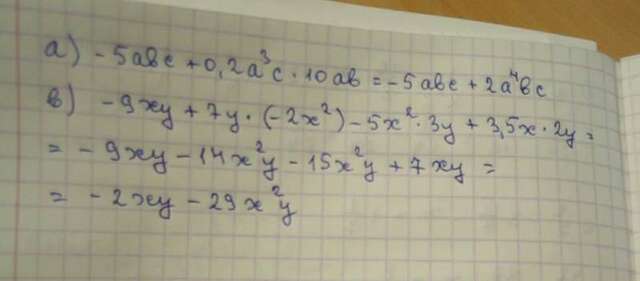 а) - 5abc + 0,2a³c · 10ab = - 5abc + 2a⁴bc
в) - 9xy + 7y · (-2x²) - 5x² · 3y + 3,5x · 2y =
= - 9xy - 14x²y - 15x²y + 7xy =
= - 2xy - 29x²y